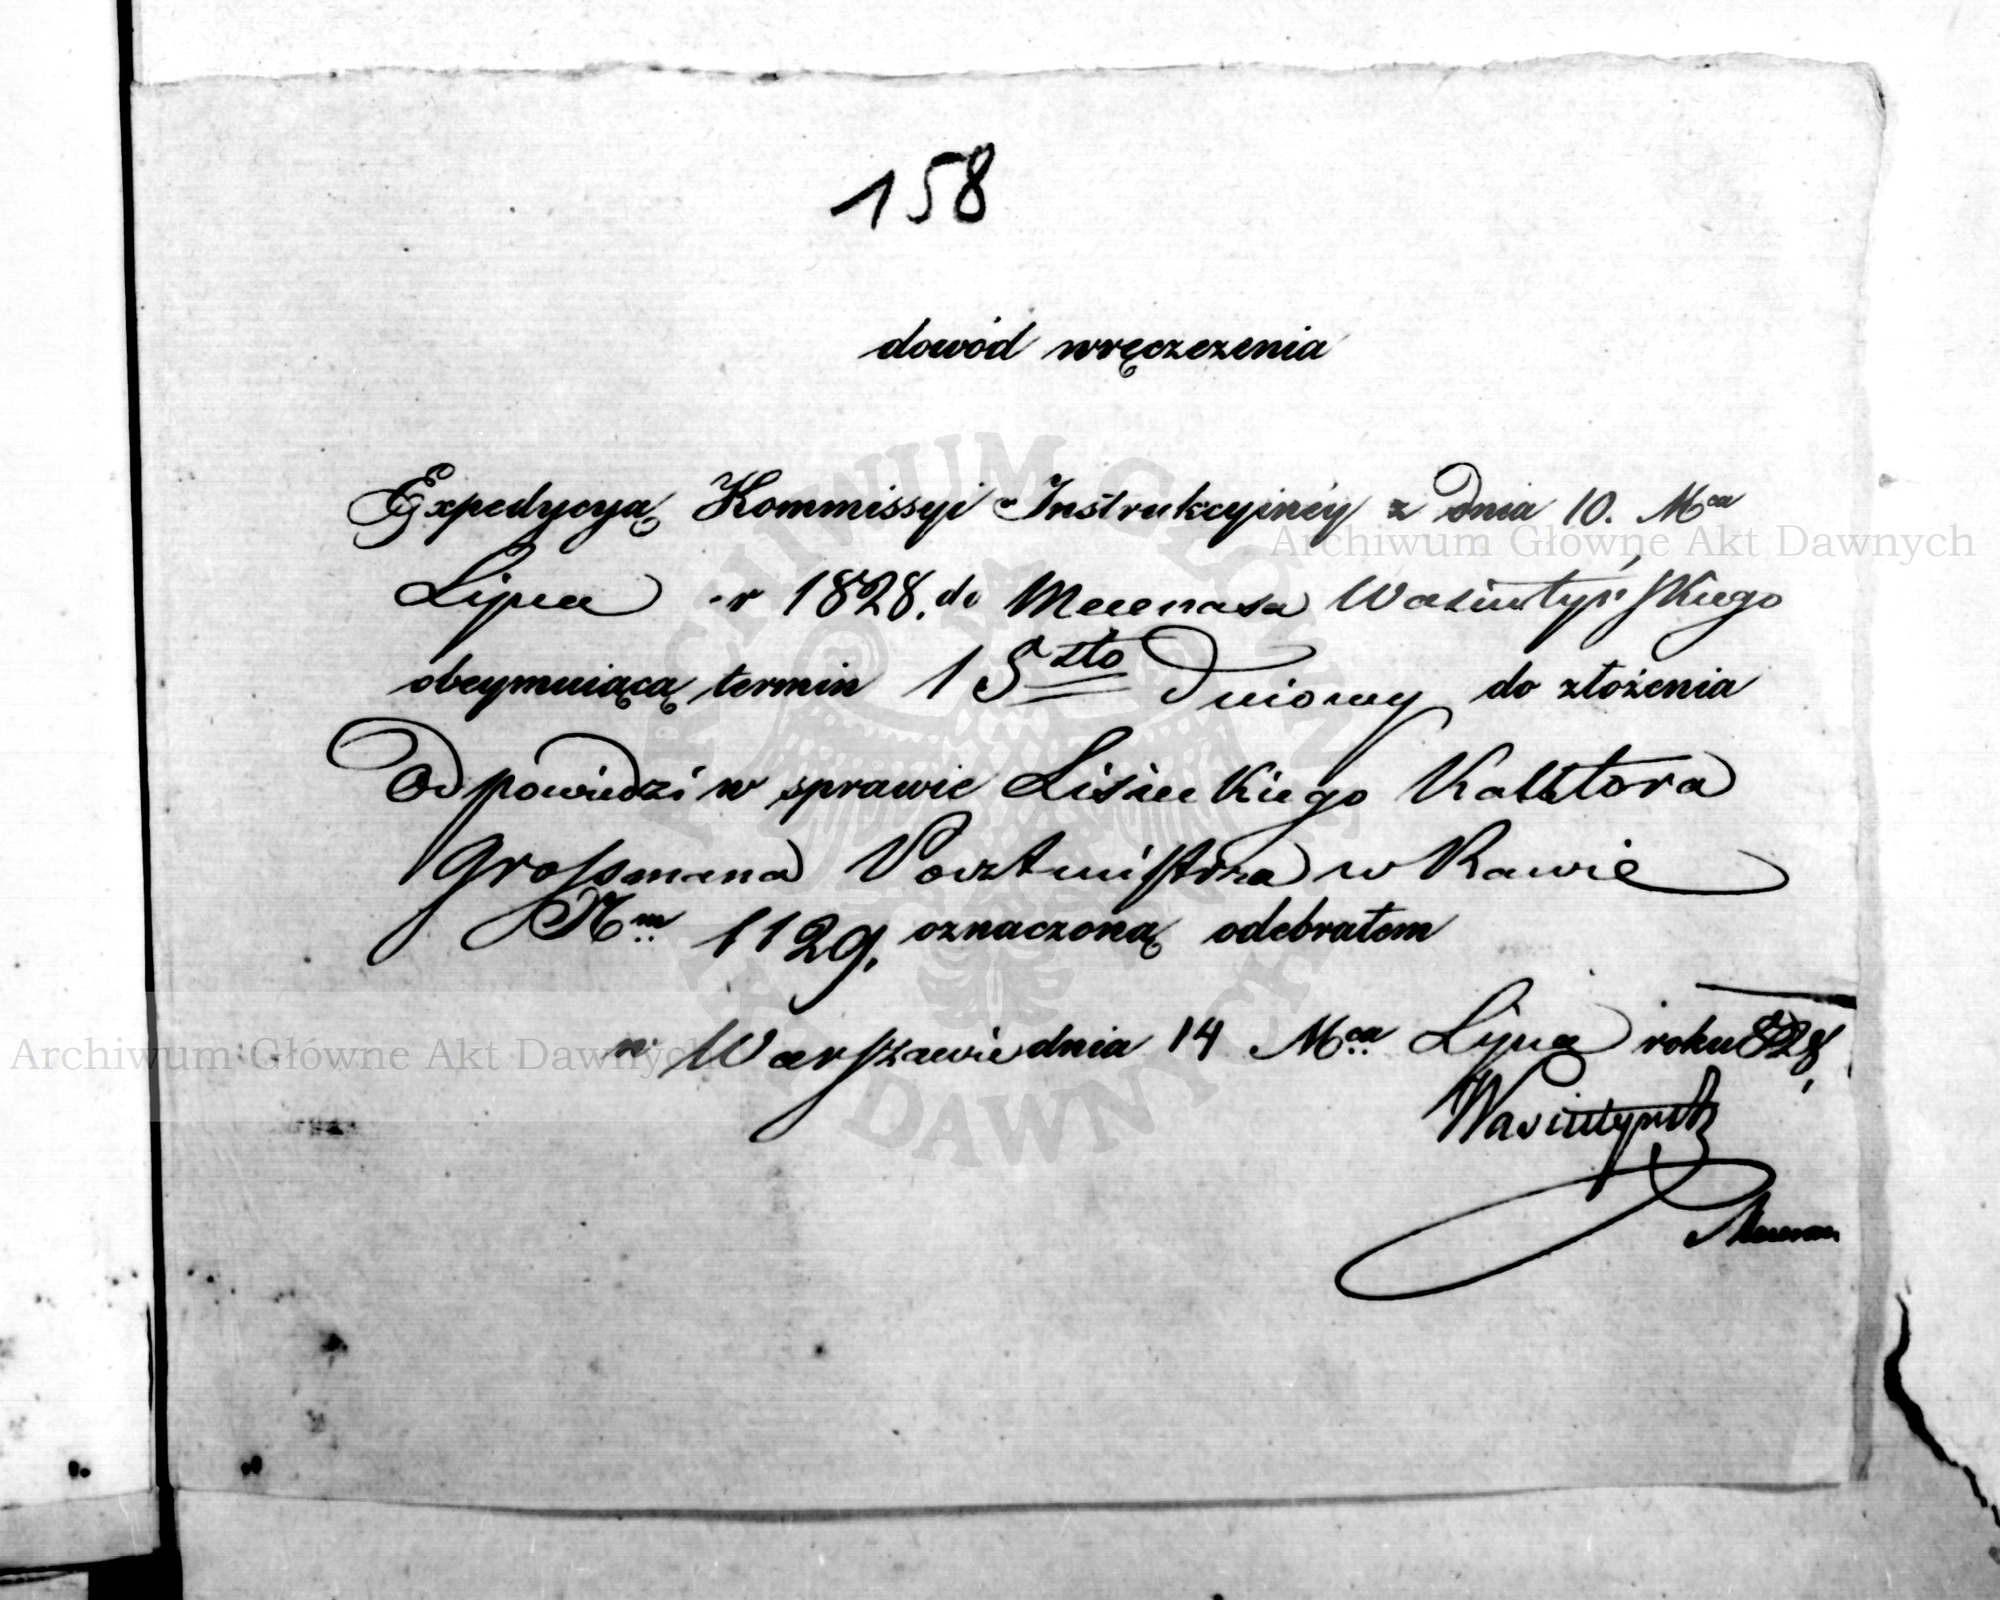 158
dowód wręczenia
Expedycyą Kommissyi Instrukcyinéy z Dnia 10. Mca
Lipca r 1828. do Mecenasa Wasiutyńskiego
obeymuiącą termin 15sto Dniowy do złożenia
Odpowiedzi w sprawie Lisieckiego
Grossmana Pocztmistrza w Rawie
Nm 1129. oznaczoną odebrałem
w Warszawie dnia 14 Mca Lipca roku 828
Wasiutyński
Archiwum Główne Akt Dawnych
Archiwum Główne Akt Dawnych
ARCHIWUM GŁÓWNE AKT DAWNYCH